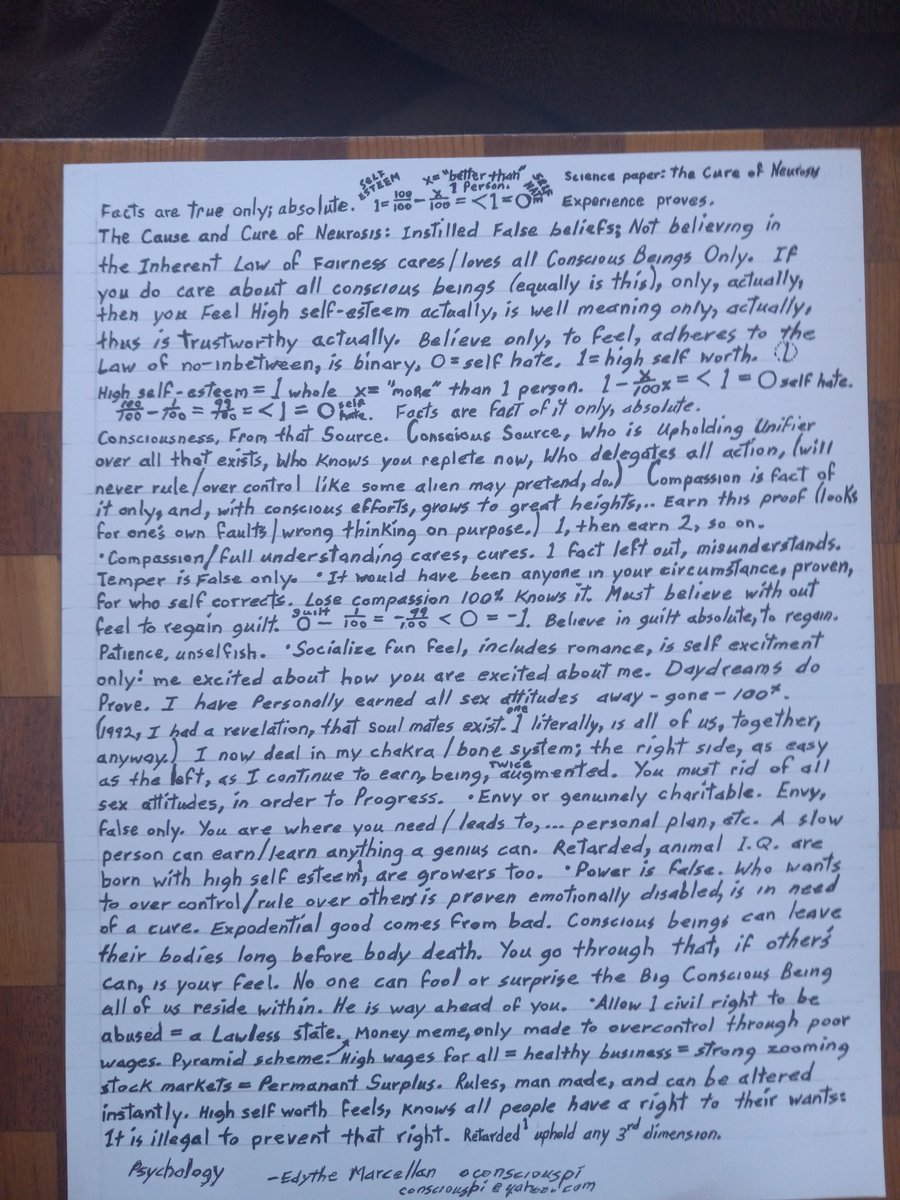 SELF ESTEEM x= "better than" 1 Person. SELF HATE Science paper: the Cure of Neurosis
Facts are true only; absolute. 1= 100/100 - x/100 = <1 = 0 Experience proves.
The Cause and Cure of Neurosis: Instilled False beliefs; Not believing in
the Inherent Law of Fairness cares/loves all Conscious Beings Only. If
you do care about all conscious beings (equally is this), only, actually,
then you Feel High self-esteem actually, is well meaning only, actually,
thus is Trustworthy actually. Believe only, to feel, adheres to the
Law of no-inbetween, is binary, 0 = self hate. 1= high self worth. 1
High self-esteem = 1 whole x= "more" than 1 person. 1 - x/100% = < 1 = 0 self hate.
100/100 - 1/100 = 99/100 = <1 = 0 self hate. Facts are fact of it only, absolute.
Consciousness, From that Source. Conscious Source, Who is Upholding Unifier
over all that exists, Who Knows you replete now, Who delegates all action, (will
never rule/over control like some alien may pretend, do.) Compassion is fact of
it only, and, with conscious efforts, grows to great heights,.. Earn this proof (looks
for one's own faults/wrong thinking on purpose.) 1, then earn 2, so on.
•Compassion/full understanding cares, cures. 1 fact left out, misunderstands.
Temper is False only. •It would have been anyone in your circumstance, proven,
for who self corrects. Lose compassion 100% Knows it. Must believe with out
feel to regain guilt. guilt 0 - 1/100 = -99/100 < 0 = -1. Believe in guilt absolute, to regain.
Patience, unselfish. •Socialize fun feel, includes romance, is self excitment
only: me excited about how you are excited about me. Daydreams do
Prove. I have Personally earned all sex attitudes away - gone - 100%.
(1992, I had a revelation, that soul mates exist. 1 one literally, is all of us, together,
anyway.) I now deal in my chakra/bone system; the right side, as easy
as the left, as I continue to earn, being, twice augmented. You must rid of all
sex attitudes, in order to Progress. •Envy or genuinely charitable. Envy,
false only. You are where you need/leads to,... personal plan, etc. A slow
person can earn/learn anything a genius can. Retarded, animal I.Q. are
born with high self esteem1, are growers too. •Power is false. Who wants
to over control/rule over others is proven emotionally disabled, is in need
of a cure. Expodential good comes from bad. Conscious beings can leave
their bodies long before body death. You go through that, if others
can, is your feel. No one can fool or surprise the Big Conscious Being
all of us reside within. He is way ahead of you. •Allow 1 civil right to be
abused = a Lawless state. Money meme, only made to overcontrol through poor
wages. Pyramid scheme. High wages for all = healthy business = strong zooming
stock markets = Permanant Surplus. Rules, man made, and can be altered
instantly. High self worth feels, knows all people have a right to their wants:
It is illegal to prevent that right. Retarded1 uphold any 3rd dimension.
Psychology -Edythe Marcellan @consciouspi
consciouspi@yahoo.com